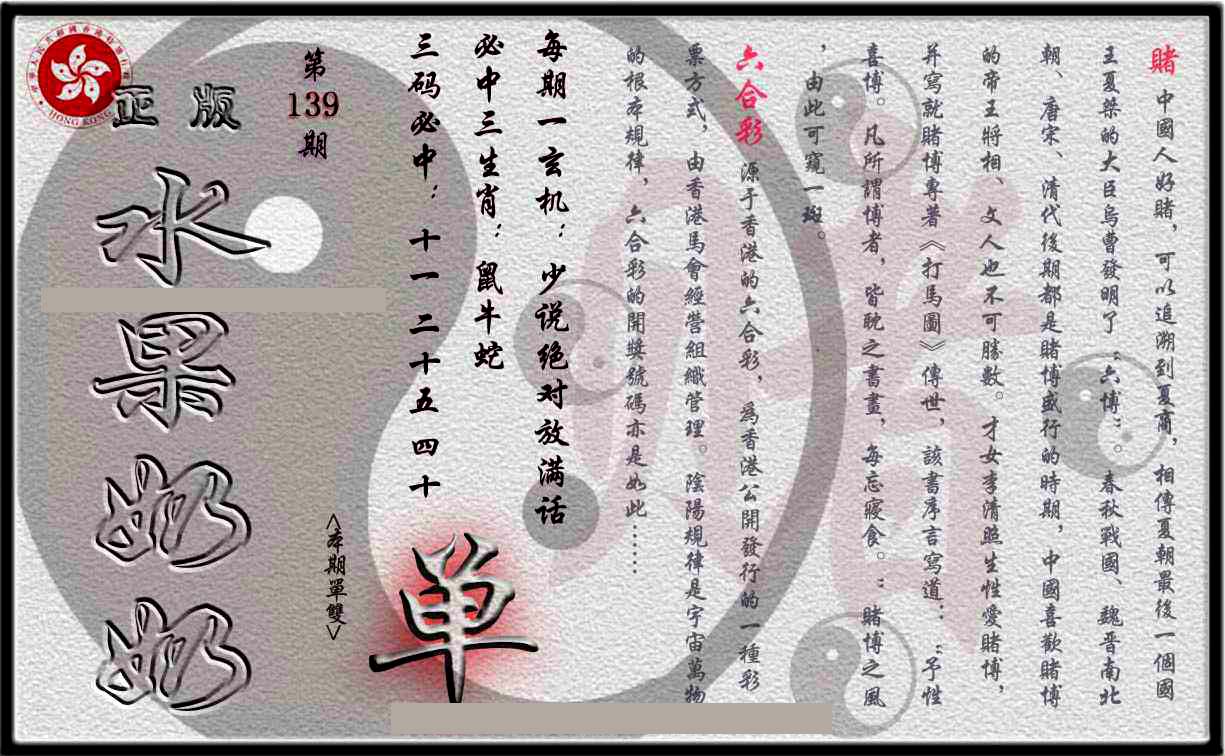 賭 中國人好賭，可以追溯到夏商，相傳夏朝最後一個國
王夏桀的大臣烏曹發明了“六博”。春秋戰國、魏晋南北
朝、唐宋、清代後期都是賭博盛行的時期，中國喜歡賭博
的帝王將相、文人也不可勝數。才女李清照生性愛賭博，
并寫就賭博專著《打馬圖》傳世，該書序言寫道：“予性
喜博。凡所謂博者，皆耽之書畫，每忘寢食。”賭博之風
，由此可窺一斑。
六合彩 源于香港的六合彩，為香港公開發行的一種彩
票方式，由香港馬會經營組織管理。陰陽規律是宇宙萬物
的根本規律，六合彩的開獎號碼亦是如此……
每期一玄机：少说绝对放满话
必中三生肖：鼠牛蛇
三码必中：十一二十五四十
第
139
期
<本期單雙>
单
正版
水果奶奶
HONG KONG